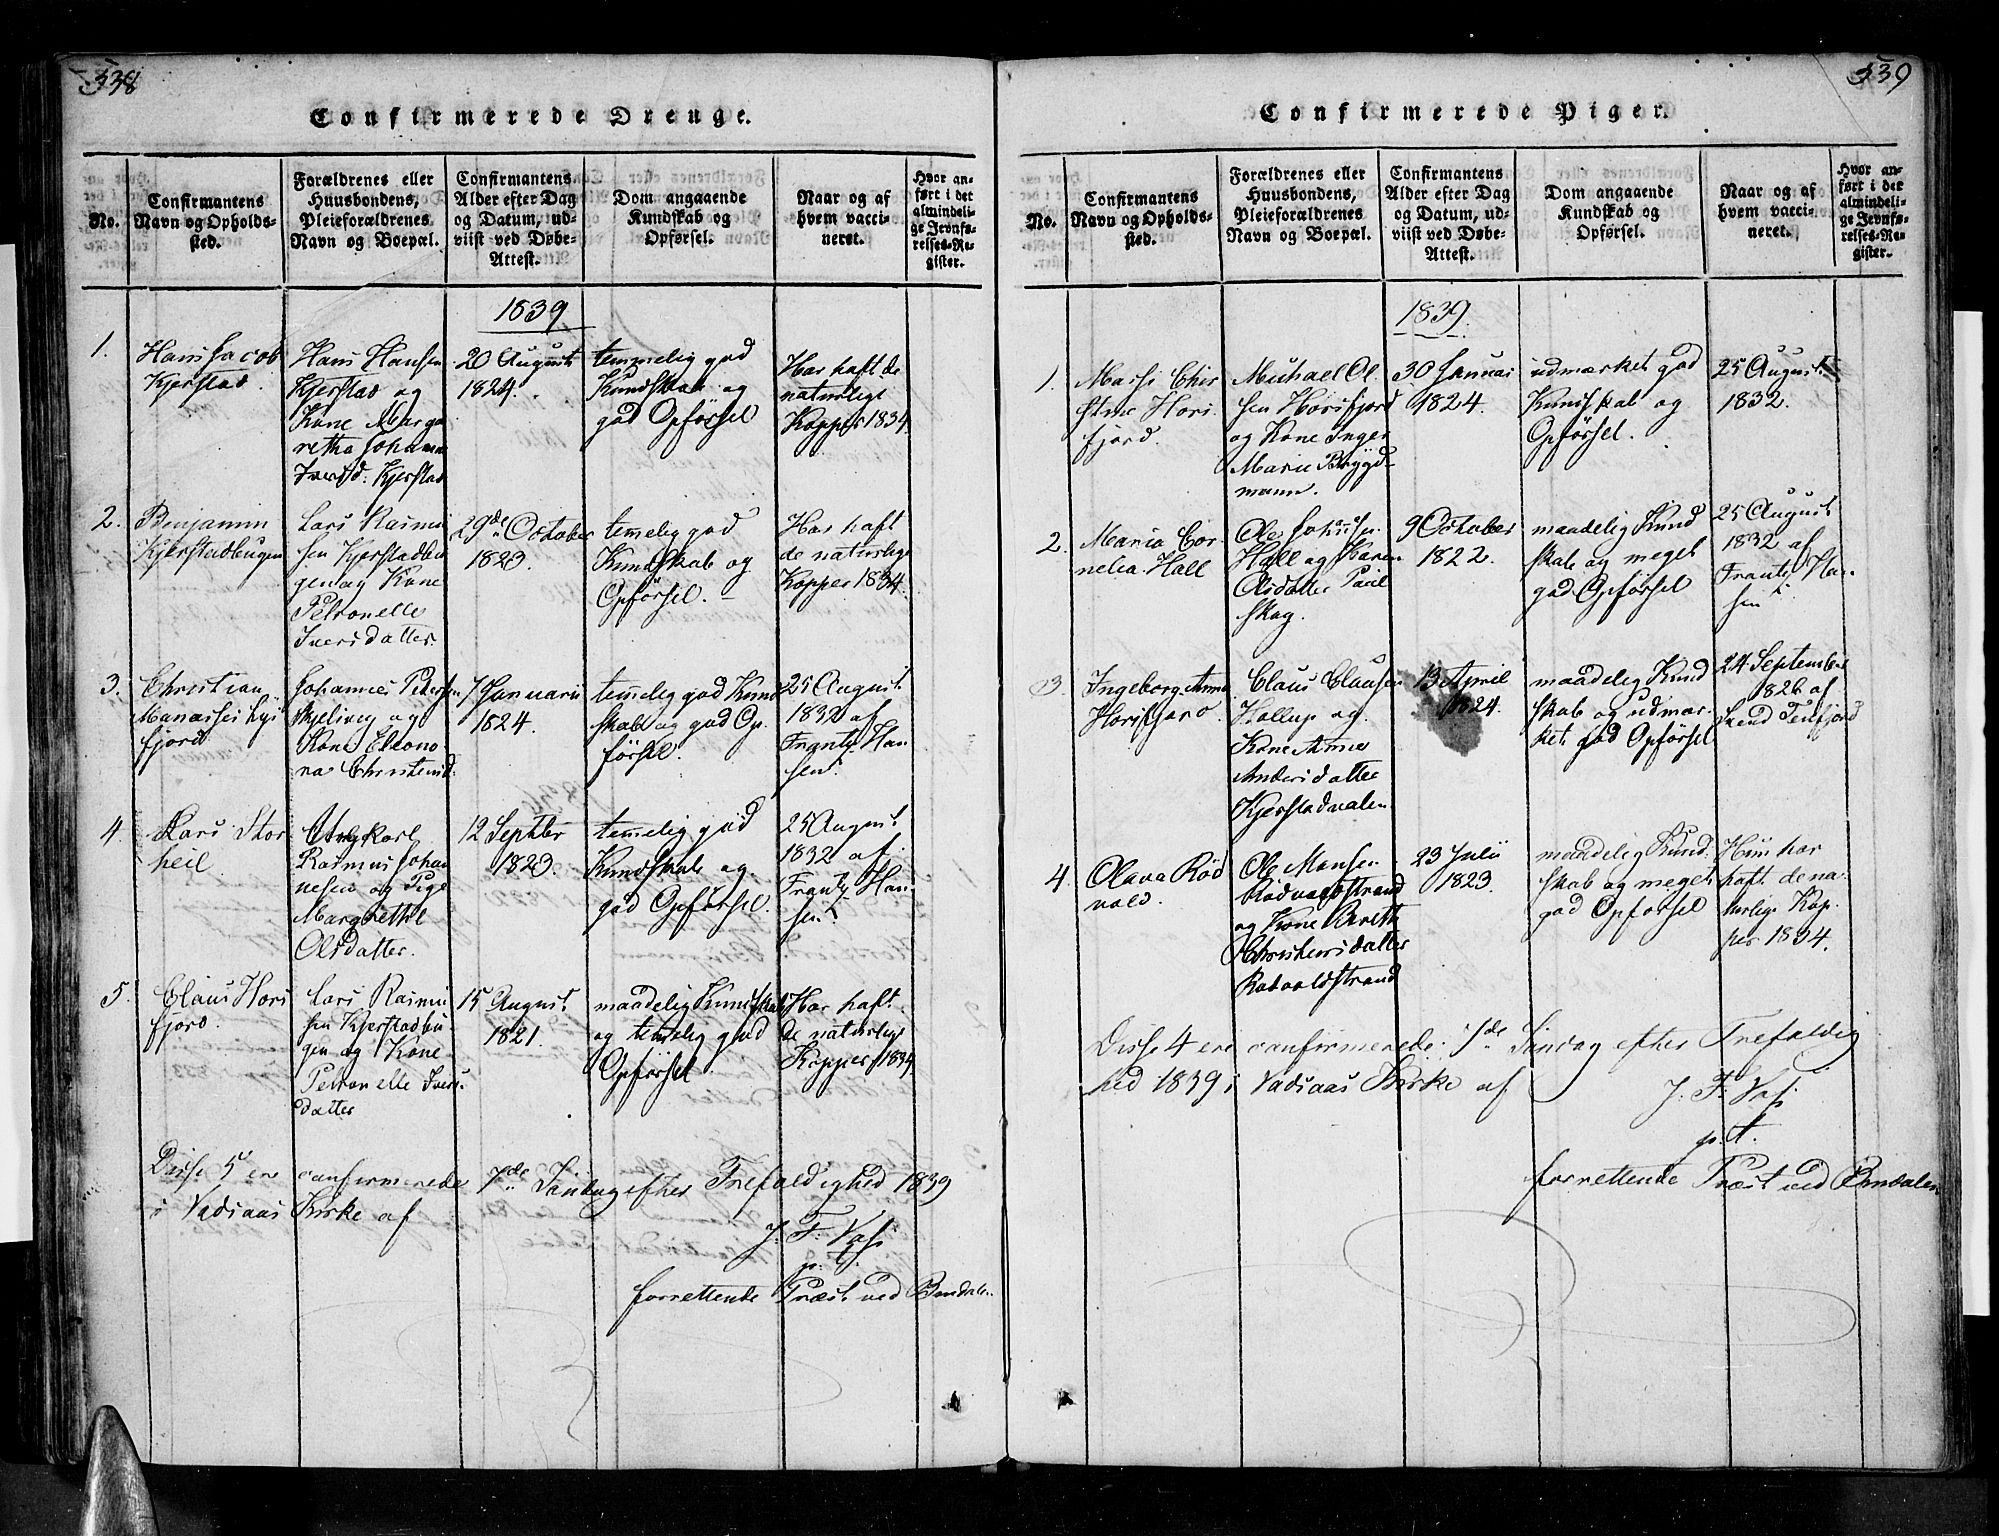 338
Confirmerede Drenge.
No.
Confirmantens
Navn og Opholds-
sted.
Forældrenes eller
Huusbondens,
Pleieforældrenes
Navn og Boepæl.
Confirmantens
Alder efter Dag
og Datum, ud-
viist ved Døbe-
Attest.
Dom angaaende
Kundskab og
Opførsel.
Naar og af
hvem vacci-
neret.
Hvor an-
ført i det
almindeli-
ge Jevnfø-
relses-Re-
gister.
1839
1.
Hans Jacob
Kjerstad.
Hans Hansen
Kjerstad og
Kone Marga
retha Johanna
Iversd: Kjerstad
20 August
1824.
temmelig god
Kundskab og
god Opförsel
Har haft de
naturlige
Kopper 1834.
2.
Benjamin
Kjerstadbugen
Lars Rasmu
sen Kjerstadbu
gen og Kone
Petronelle
Iversdatter.
29de October
1823.
temelig god
Kundskab og
Opförsel.
Har haft
de naturlige
Kopper 1834.
3.
Christian
Manasses
fjord
Johannes Pedersen
og
Kone Eleono
ra Christensd.
7 Januarii
1824.
temmelig god Kund
skab og god Op
førsel.
25 August
1832 af
Frantz Han
sen.
4.
Lars Stor
heil
Ungkarl
Rasmus Johan
nesen og Pige
Margrethe
Olsdatter.
12 Septbr
1823.
temmelig god
Kundskab og
god Opførsel.
25 August
1832 af
Frantz Han
sen
5.
Claus Hors
fjord.
Lars Rasmu
sen Kjerstadbu
gen og Kone
Petronelle Ivers
datter
15 August
1821.
maadelig Kundskab
og temelig god
Opförsel.
Har haft
de naturlige
Kopper 1834
Disse 5 ere confirmerede 7de Søndag efter Trefoldighed 1839
i Vadsaas Kirke af
J. F. Vos
p. t.
forrettende Præst ved Bindalen
339
Confirmerede Piger.
No.
Confirmantens
Navn og Opholds-
sted.
Forældrenes eller
Huusbondens,
Pleieforældrenes
Navn og Boepæl.
Confirmantens
Alder efter Dag
og Datum, ud-
viist ved Døbe-
Attest.
Dom angaaende
Kundskab og
Opførsel.
Naar og af
hvem vacci-
neret.
Hvor an-
ført i det
almindeli-
ge Jevnfø-
relses-Re-
gister.
1839.
1.
Masse Chir
stine Hors
fjord.
Michael Ol
sen Horsfjord
og Kone Inger
Marie Brygd
mann.
30 Januar
1824.
udmærket god
Kundskab og
Opförsel.
25 August
1832.
2.
Maria Cor
nelia Hall
Ole Johansen
Hall og Karen
Olsdatter
skog.
9 October
1822.
maadelig Kund
skab og meget
god Opførsel
25 August
1832 af
Frantz Han
sen
3.
Ingeborg Anna
Horsfjord
Claus Clausen
Hollup og
Kone Anne
Andersdatter
Kjerstadvalen
13 April
1824.
maadelig Kund
skab og udmær
ket god Opførsel
24 September
1826 af
Svend Terfjord
4.
Olava Röd
vold.
Ole Monsen
Rödvoldstrand
og Kone Berett
Christensdatter
Rödvoldstrand
23 Julii
1823.
maadelig Kund
skab og meget
god Opførsel
Hun har
haft de na
turlige Kop
per 1834.
Disse 4 ere confirmerede 7de Søndag efter Trefoldig
hed 1839 i Vadsaas Kirke af
J. F. Vos
p. t.
forrettende Præst ved Bindalen